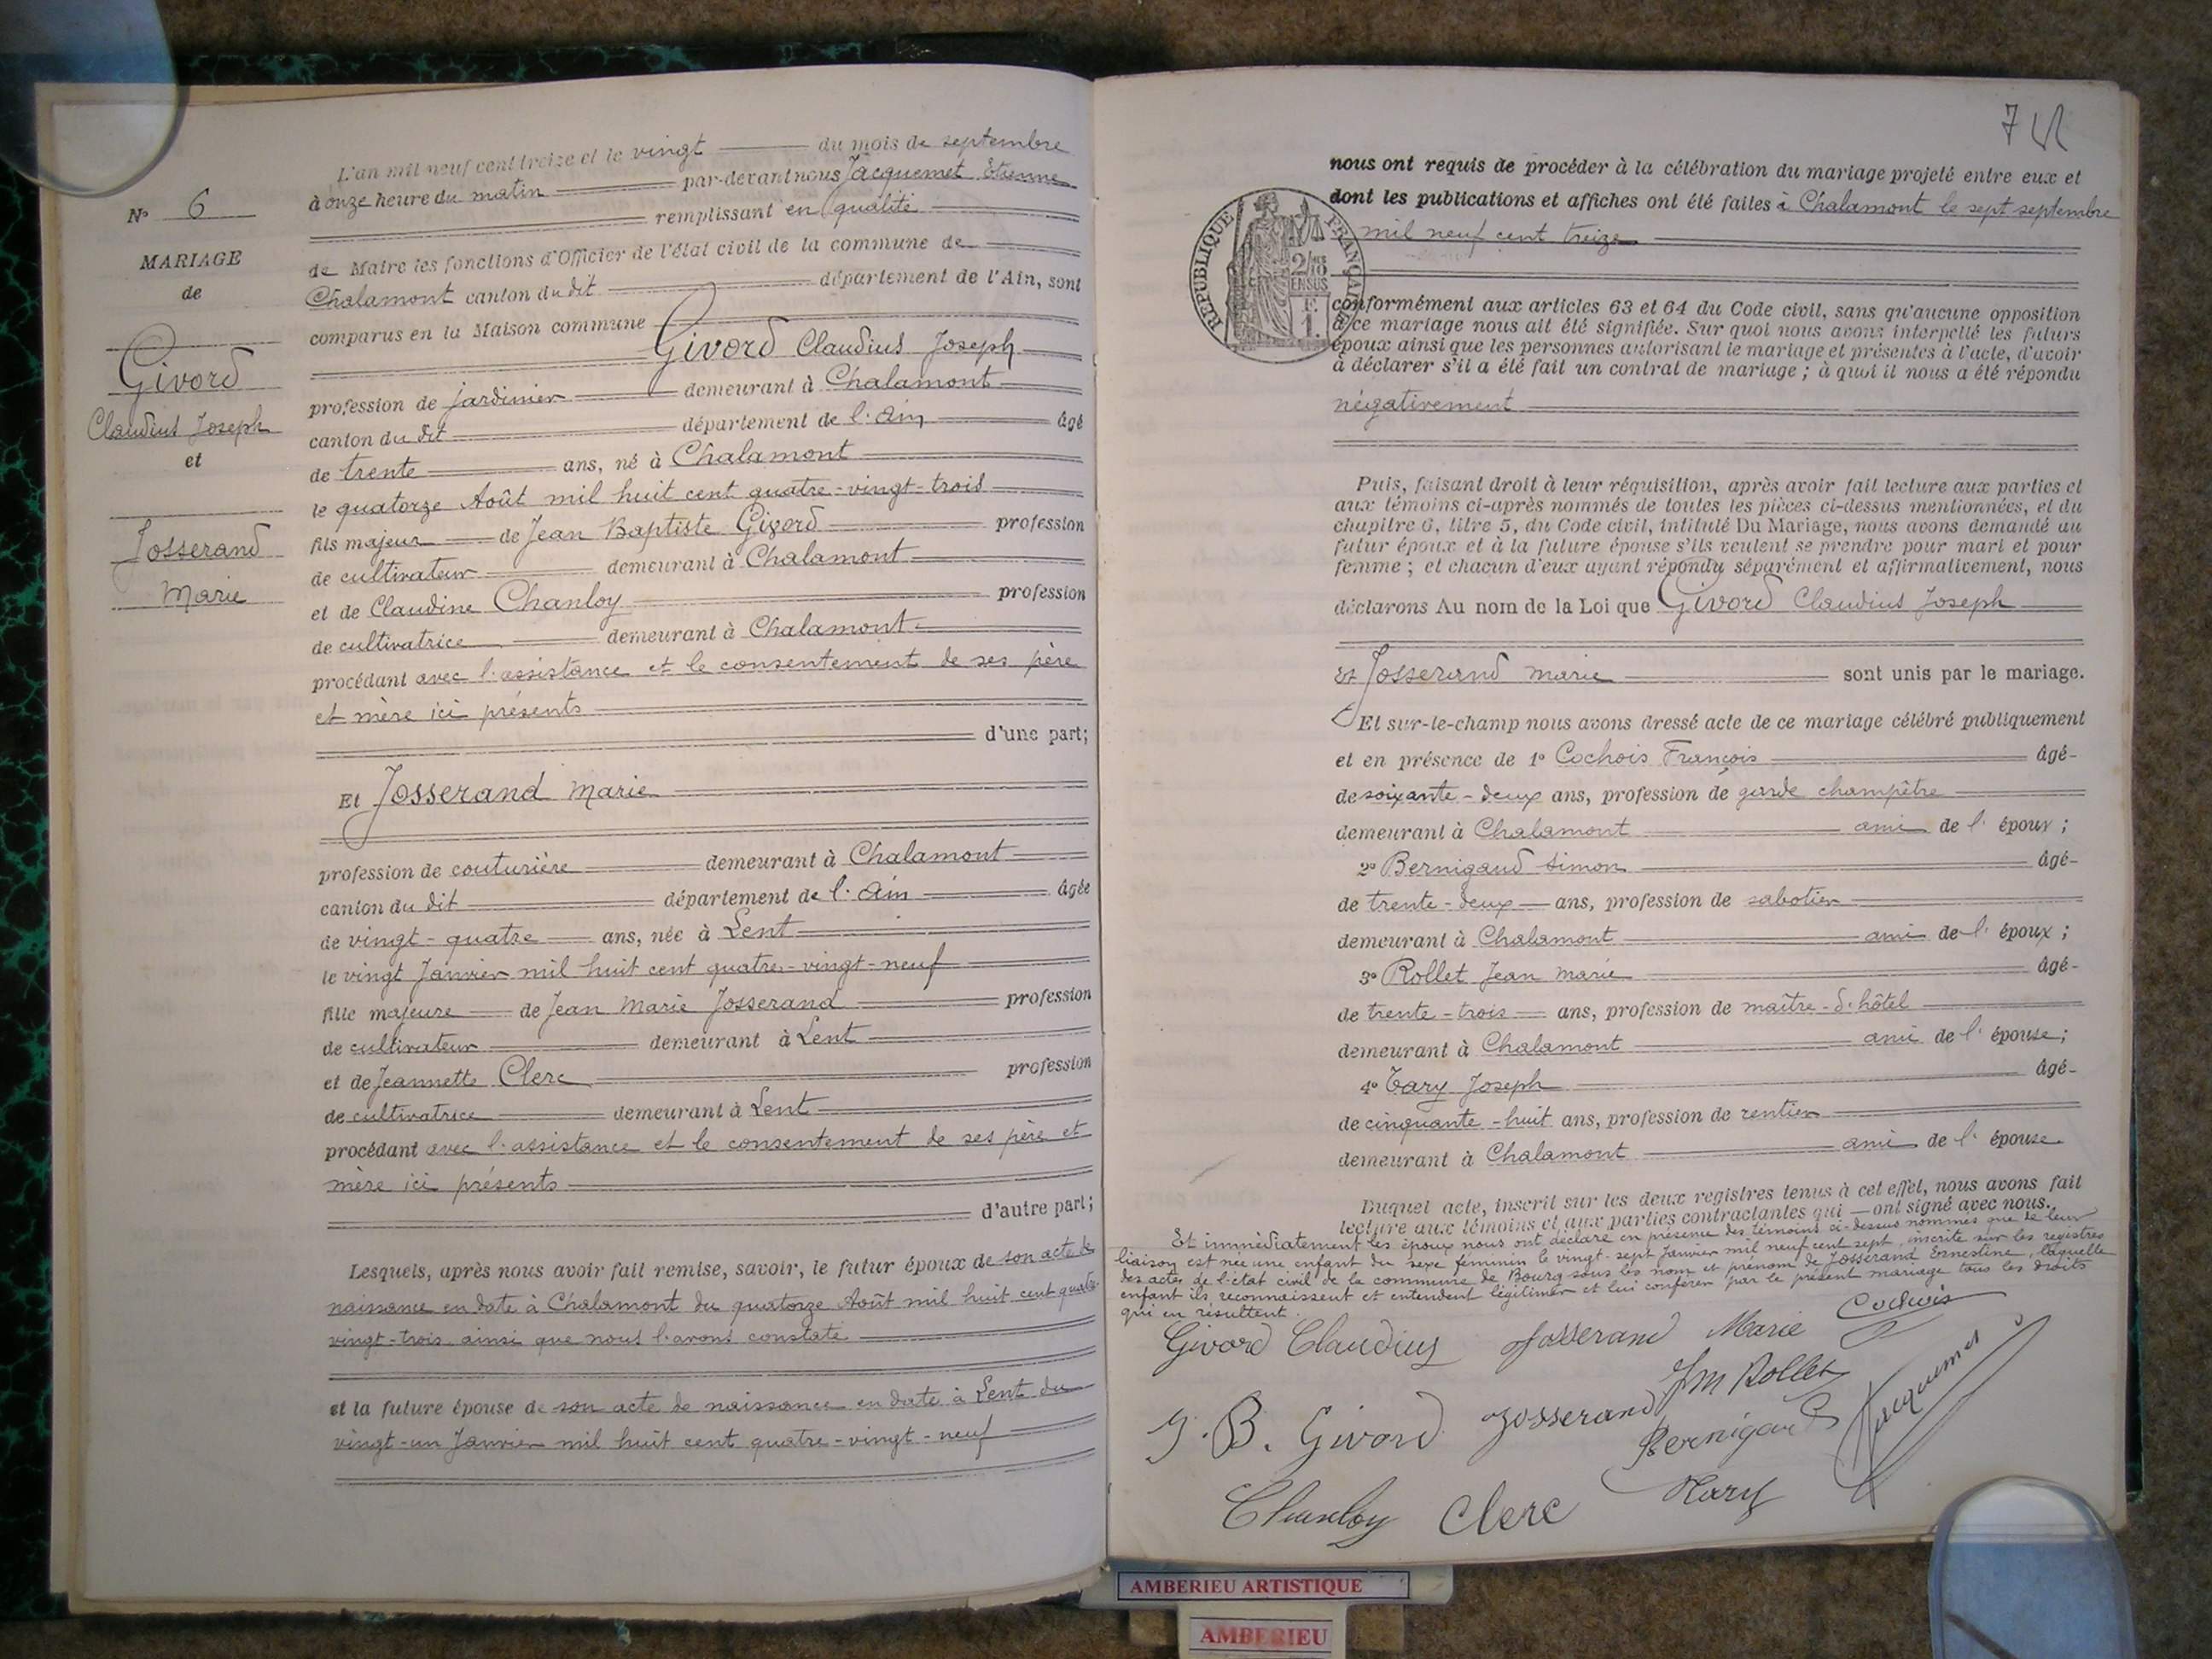 N° 6
MARIAGE
de
Givord
Claudius Joseph
et
Josserand
Marie
L'an mil neuf cent treize et le vingt du mois de septembre
à onze heure du matin par-devant nous Jacquemet Etienne
remplissant en qualité
de Maire les fonctions d'Officier de l'état civil de la commune de
Chalamont canton du dit département de l'Ain, sont
comparus en la Maison commune
Givord Claudius Joseph
profession de jardinier demeurant à Chalamont
canton du dit département de l'Ain âgé
de trente ans, né à Chalamont
le quatorze Août mil huit cent quatre-vingt-trois
fils majeur de Jean Baptiste Givord profession
de cultivateur demeurant à Chalamont
et de Claudine Chanloy profession
de cultivatrice demeurant à Chalamont
procédant avec l'assistance et le consentement de ses père
et mère ici présents
d'une part;
Et Josserand Marie
profession de couturière demeurant à Chalamont
canton du dit département de l'Ain âgée
de vingt-quatre ans, née à Lent
le vingt Janvier mil huit cent quatre-vingt-neuf
fille majeure de Jean Marie Josserand profession
de cultivateur demeurant à Lent
et de Jeannette Clerc profession
de cultivatrice demeurant à Lent
procédant avec l'assistance et le consentement de ses père et
mère ici présents
d'autre part;
Lesquels, après nous avoir fait remise, savoir, le futur époux de son acte de
naissance en date à Chalamont du quatorze Août mil huit cent quatre-
vingt-trois ainsi que nous l'avons constaté
et la future épouse de son acte de naissance en date à Lent du
vingt-un Janvier mil huit cent quatre-vingt-neuf
7
nous ont requis de procéder à la célébration du mariage projeté entre eux et
dont les publications et affiches ont été faites à Chalamont le sept septembre
mil neuf cent treize
RÉPUBLIQUE FRANÇAISE
2/10 EN SUS
F.
1.
conformément aux articles 63 et 64 du Code civil, sans qu'aucune opposition
à ce mariage nous ait été signifiée. Sur quoi nous avons interpellé les futurs
époux ainsi que les personnes autorisant le mariage et présentes à l'acte, d'avoir
à déclarer s'il a été fait un contrat de mariage ; à quoi il nous a été répondu
négativement
Puis, faisant droit à leur réquisition, après avoir fait lecture aux parties et
aux témoins ci-après nommés de toutes les pièces ci-dessus mentionnées, et du
chapitre 6, titre 5, du Code civil, intitulé Du Mariage, nous avons demandé au
futur époux et à la future épouse s'ils veulent se prendre pour mari et pour
femme ; et chacun d'eux ayant répondu séparément et affirmativement, nous
déclarons Au nom de la Loi que Givord Claudius Joseph
Et Josserand Marie sont unis par le mariage.
Et sur-le-champ nous avons dressé acte de ce mariage célébré publiquement
et en présence de 1° Cochois François âgé-
de soixante-deux ans, profession de garde champêtre
demeurant à Chalamont ami de l' époux ;
2° Bernigaud Simon âgé-
de trente-deux ans, profession de sabotier
demeurant à Chalamont ami de l' époux ;
3° Rollet Jean Marie âgé-
de trente-trois ans, profession de maître-d'hôtel
demeurant à Chalamont ami de l' épouse ;
4° Tary Joseph âgé-
de cinquante-huit ans, profession de rentier
demeurant à Chalamont ami de l' épouse
Duquel acte, inscrit sur les deux registres tenus à cet effet, nous avons fait
lecture aux témoins et aux parties contractantes qui ont signé avec nous.
Et immédiatement les époux nous ont déclaré en présence des témoins ci-dessus nommés que de leur
liaison est née une enfant du sexe féminin le vingt-sept Janvier mil neuf cent sept, inscrite sur les registres
des actes de l'état civil de la commune de Bourg sous les nom et prénom de Josserand Ernestine, laquelle
enfant ils reconnaissent et entendent légitimer et lui conférer par le présent mariage tous les droits
qui en résultent.
Givord Claudius Josserand Marie Cochois
Jm Rollet
J. B. Givord Josserand Bernigaud Jacquemet
Chanloy Clerc Tary
AMBERIEU ARTISTIQUE
AMBERIEU